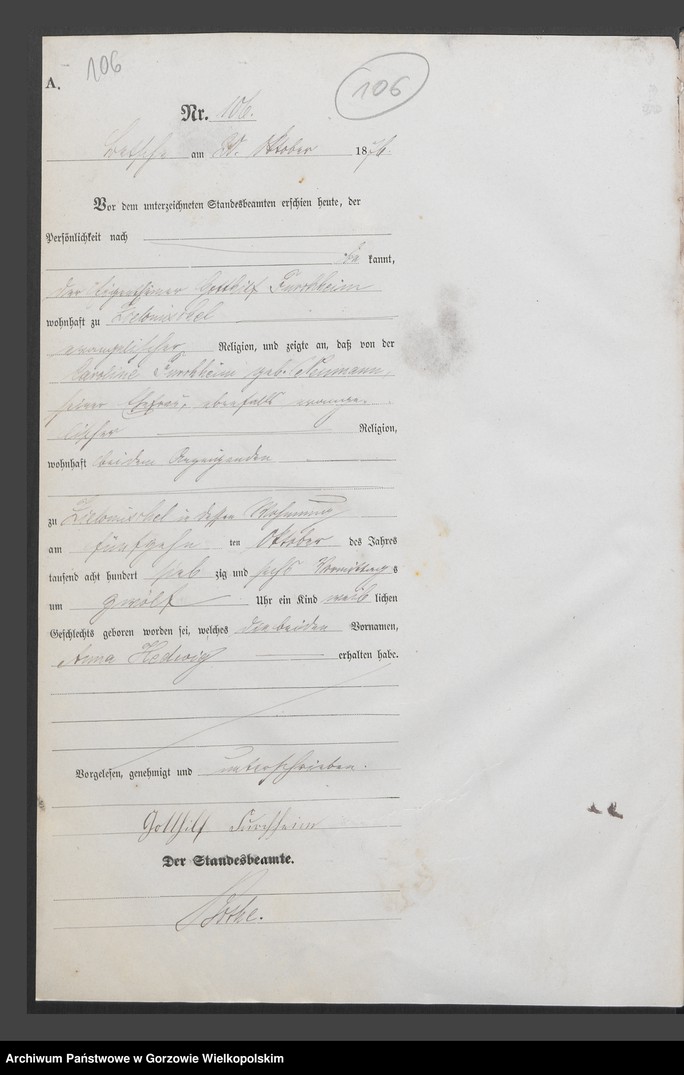 A.
106
106
Nr. 106.
Betsche am 20. Oktober 1876.
Vor dem unterzeichneten Standesbeamten erschien heute, der
Persönlichkeit nach
be kannt,
der Eigenthümer Gotthilf Furchheim
wohnhaft zu
evangelischer Religion, und zeigte an, daß von der
Caroline Furchheim geb. Neumann,
seiner Ehefrau, ebenfalls evange-
lischer Religion,
wohnhaft bei dem Anzeigenden
zu in dessen Wohnung
am fünfzehn ten Oktober des Jahres
tausend acht hundert sieb zig und sechs Vormittags
um zwölf Uhr ein Kind weib lichen
Geschlechts geboren worden sei, welches die beiden Vornamen,
Anna Hedwig erhalten habe.
Vorgelesen, genehmigt und unterschrieben.
Gotthilf Furchheim
Der Standesbeamte.
Archiwum Państwowe w Gorzowie Wielkopolskim